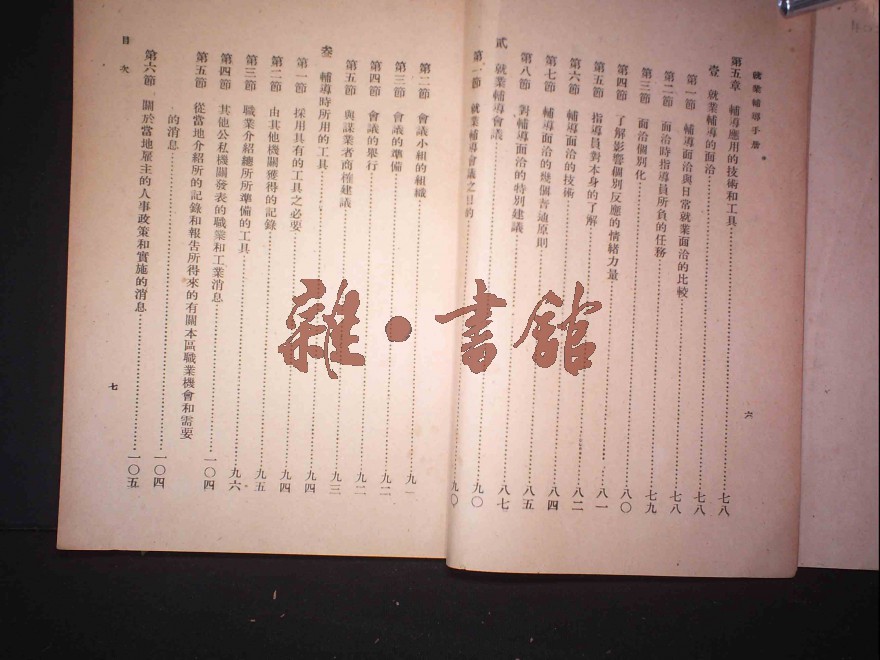 就業輔導手册
六
第五章　輔導應用的技術和工具……七八
壹　就業輔導的面洽……七八
第一節　輔導面洽與日常就業面洽的比較……七八
第二節　面洽時指導員所負的任務……七九
第三節　面洽個別化……八〇
第四節　了解影響個別反應的情緒力量……八一
第五節　指導員對本身的了解……八二
第六節　輔導面洽的技術……八四
第七節　輔導面洽的幾個普通原則……八五
第八節　對輔導面洽的特別建議……八七
貳　就業輔導會議……九〇
第一節　就業輔導會議之目的……九〇
第二節　會議小組的組織……九一
第三節　會議的準備……九二
第四節　會議的舉行……九二
第五節　與謀業者商榷建議……九三
叁　輔導時所用的工具……九四
第一節　採用具有的工具之必要……九四
第二節　由其他機關獲得的記錄……九五
第三節　職業介紹總所所準備的工具……九六
第四節　其他公私機關發表的職業和工業消息……一〇四
第五節　從當地介紹所的記錄和報告所得來的有關本區職業機會和需要
的消息……一〇四
第六節　關於當地雇主的人事政策和實施的消息……一〇五
目次
七
雜・書館